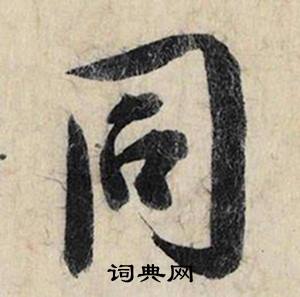 同
词典网